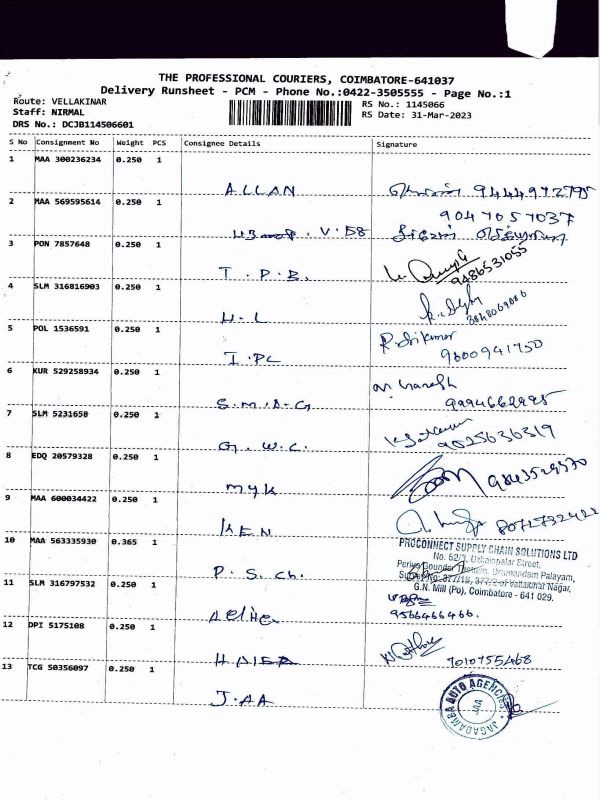 THE PROFESSIONAL COURIERS, COIMBATORE-641037
Delivery Runsheet - PCM - Phone No.:0422-3505555 - Page No.:1
Route: VELLAKINAR
Staff: NIRMAL
DRS No.: DCJB114506601
RS No.: 1145066
RS Date: 31-Mar-2023
S No Consignment No Weight PCS Consignee Details Signature
1 MAA 300236234 0.250 1
ALLAN 9444972795
2 MAA 569595614 0.250 1
9047057037
V. 58
3 PON 7857648 0.250 1
T.P.B. 9486531055
4 SLM 316816903 0.250 1
H.L
5 POL 1536591 0.250 1
I.PL R. Srikumar 9600941750
6 KUR 529258934 0.250 1
S.M.A.G 9994662995
7 SLM 5231658 0.250 1
G.W.C. 9025636319
8 EDQ 20579328 0.250 1
myk 9843529570
9 MAA 600034422 0.250 1
KEN 8072732422
10 MAA 563335930 0.365 1
PROCONNECT SUPPLY CHAIN SOLUTIONS LTD
No. 52/3, Street,
Periya Gounder Thottam, Urumandam Palayam,
Survey No. 377/1B, of Vellakinar Nagar,
G.N. Mill (Po), Coimbatore - 641 029.
P.S.Ch.
11 SLM 316797532 0.250 1
9566466466.
12 DPI 5175108 0.250 1
HAIER 7010755468
13 TCG 50356097 0.250 1
J.AA
JAGADAMBA AUTO AGENCIES
JAA